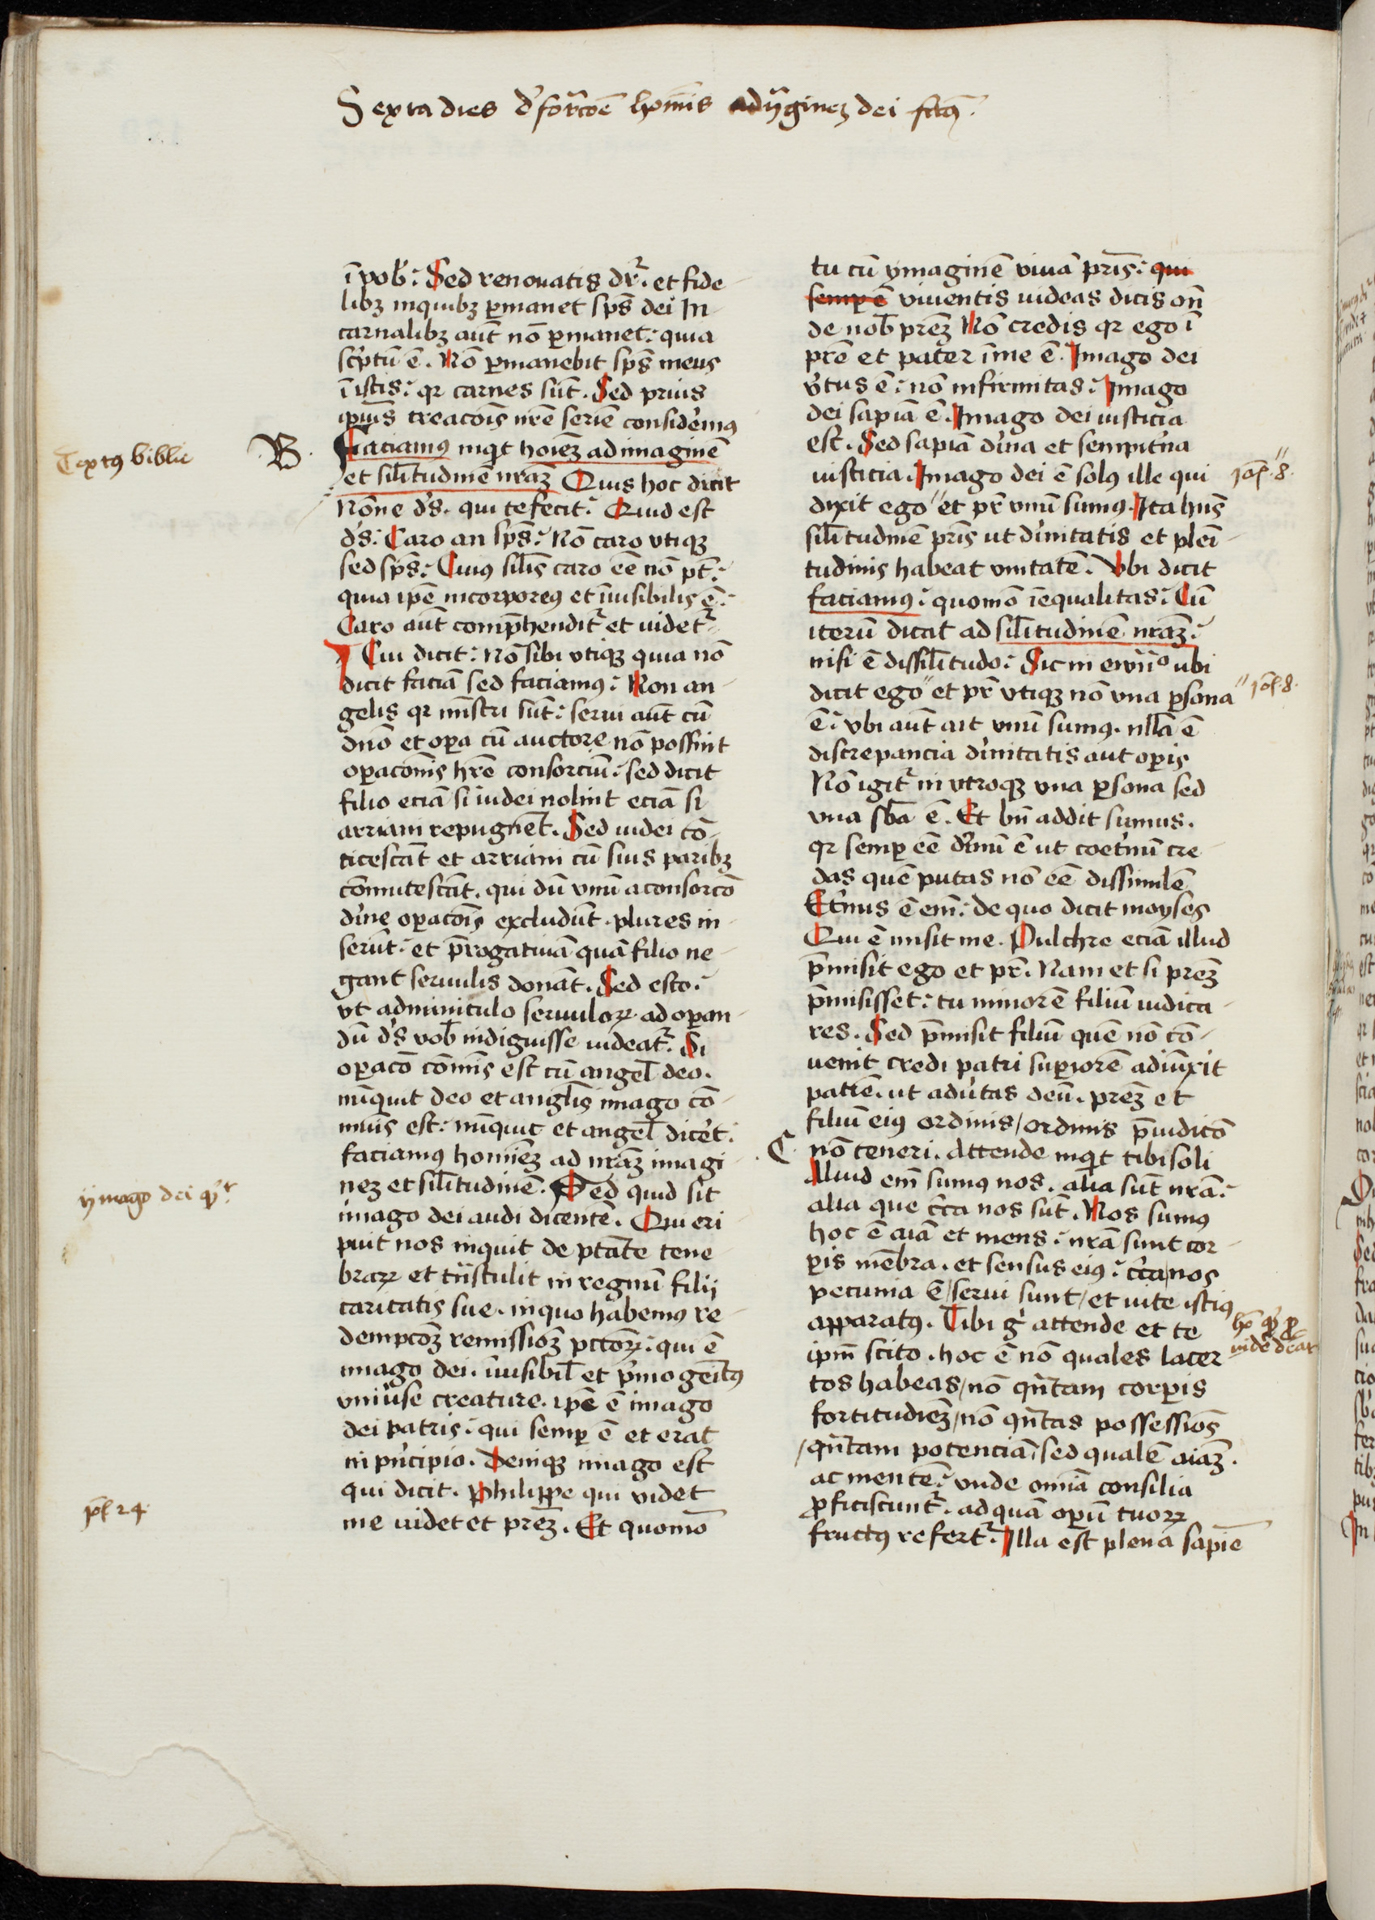 Sexta dies d' forc̄oe hoīs ad ỹginez dei fc̄tus.
ī vob̄: Sed renouatis dr̄. et fide
libꝫ inquibꝫ ꝑmanet sp̄s dei In
carnalibꝫ aūt nō ꝑmanet: quia
scͥptū ē. Nō ꝑmanebit sp̄s meus
ī istis: qꝛ carnes sūt. Sed prius
ipius creacōis nr̄e seriē considem̾ꝰ
Textꝰ biblie
B.
Faciamꝰ inqͥt hoīeꝫ ad imaginē
et sil̄itudinē nr̄aꝫ Quis hoc dicit
Nōne d̄s. qui te fecit: Quid est
d̄s: Caro an sp̄s: Nō caro vtiqꝫ
sed sp̄s: Cuiꝰ sil̄is caro eē nō pt̄:
quia ip̄e incorporeꝰ et īuisibilis ē:
Caro aūt comp̄hendit᷑ et videt᷑
Cui dicit: Nō sibi vtiqꝫ quia nō
dicit faciā sed faciamꝰ: Non an-
gelis qꝛ mīstri sūt: serui aūt cū
dn̄o et oꝑa cū auctore nō possint
oꝑacōnis hr̄e consorciū: sed dicit
filio eciā si iudei nolint eciā si
arriani repugnēt. Sed iudei cō-
ticescāt et arriāni cū suis paribꝫ
cōmutescāt. qui dū vnū a consorcō
di̾ne oꝑacōis excludūt. plures in-
serūt: et p̄rogatiuā quā filio ne-
gant seruulis donāt. Sed esto:
vt adminiculo seruuloꝝ ad oꝑan-
dū d̄s vob̄ indiguisse videat᷑. Si
oꝑacō cōmīs est cū angel̄ deo.
nūquit deo et angl̄is imago cō-
mūis est: nūquit et angel̄ dic̾et:
faciamꝰ hominē ad nr̄aꝫ imagi-
neꝫ et sil̄itudinē. Sed quid sit
ymago dei qͥ᷑
imago dei audi dicentē. Qui eri
puit nos inquit de ptāte tene
braꝝ et trāstulit in regnū filij
caritatis sue. in quo habemꝰ re-
dempcōꝫ remissiōꝫ pctōꝝ: qui ē
imago dei. īuisibil̄ et pͥmogeītꝰ
vniu̾se creature. ip̄e ē imago
dei patris: qui semꝑ ē et erat
in pͥncipio. Deniqꝫ imago est
qui dicit. Philippe qui videt
pl̄ 24.
me videt et pr̄eꝫ. Et quomō
tu cū ymaginē viuā pr̄is: qui
semꝑ ē viuentis videas dicis on̄
de nob̄ pr̄eꝫ Nō credis qꝛ ego ī
pr̄e et pater īme ē. Imago dei
v̾tus ē: nō infirmitas: Imago
dei sapiā ē. Imago dei iusticia
est. Sed sapiā di̾na et sempit̾na
iusticia. Imago dei ē solꝰ ille qui
Joh̄. 8.
dixit ego et pr̄ vnū sumꝰ. Ita hn̄s
sil̄itudinē pr̄is ut di̾nitatis et pleī-
tudinis habeat vnitatē. Vbi dicit
faciamꝰ: quomō īequalitas: Cū
iterū dicat ad sil̄itudinē nr̄aꝫ:
nisi ē dissil̄itudo: Sic in ewn̄io ubi
dicit ego et pr̄ vtiqꝫ nō vna ꝑsona
Joh̄. 8.
ē: vbi aūt ait vnū sumꝰ. nll̄a ē
discrepancia di̾nitatis aut oꝑis
Nō igit᷑ in vtroqꝫ vna ꝑsona sed
vna sb̄a ē. Et bn̄ addit sumus.
qꝛ semꝑ eē di̾nū ē ut coet̾nū cre
das quē putas nō eē dissimilē
Et̾nus ē em̄: de quo dicit moyses
Qui ē misit me. Pulchre eciā illud
p̄misit ego et pr̄. Nam et si pr̄eꝫ
p̄misisset: tu minorē filiū iudica-
res. Sed p̄misit filiū quē nō cō-
uenit credi patri suꝑiorē adiūxit
patrē. ut adu̾tas deū. pr̄eꝫ et
filiū eiꝰ ordinis/ordinis p̄iudicō
C.
nō teneri. Attende inqͥt tibi soli
Aliud em̄ sumꝰ nos. alia sūt nr̄a:
alia que cr̄ca nos sūt. Nos sumꝰ
hoc ē aīa et mens: nr̄a sunt cor-
ꝑis mēbra. et sensus eiꝰ: cr̄ca nos
pecunia ē/serui sunt/et vite istiꝰ
apparatꝰ. Tibi gͥ attende et te
ipm̄ scito. hoc ē nō quales lacer
tos habeas/nō qn̄tam corꝑis
fortitudīeꝫ/nō qn̄tas possessiōs
/qn̄tam potenciā/sed qualē aīaꝫ.
ac mentē: vnde omīa consilia
ꝓficiscunt᷑. ad quā oꝑū tuoꝝ
fructꝰ refert᷑. Illa est plena sapiē